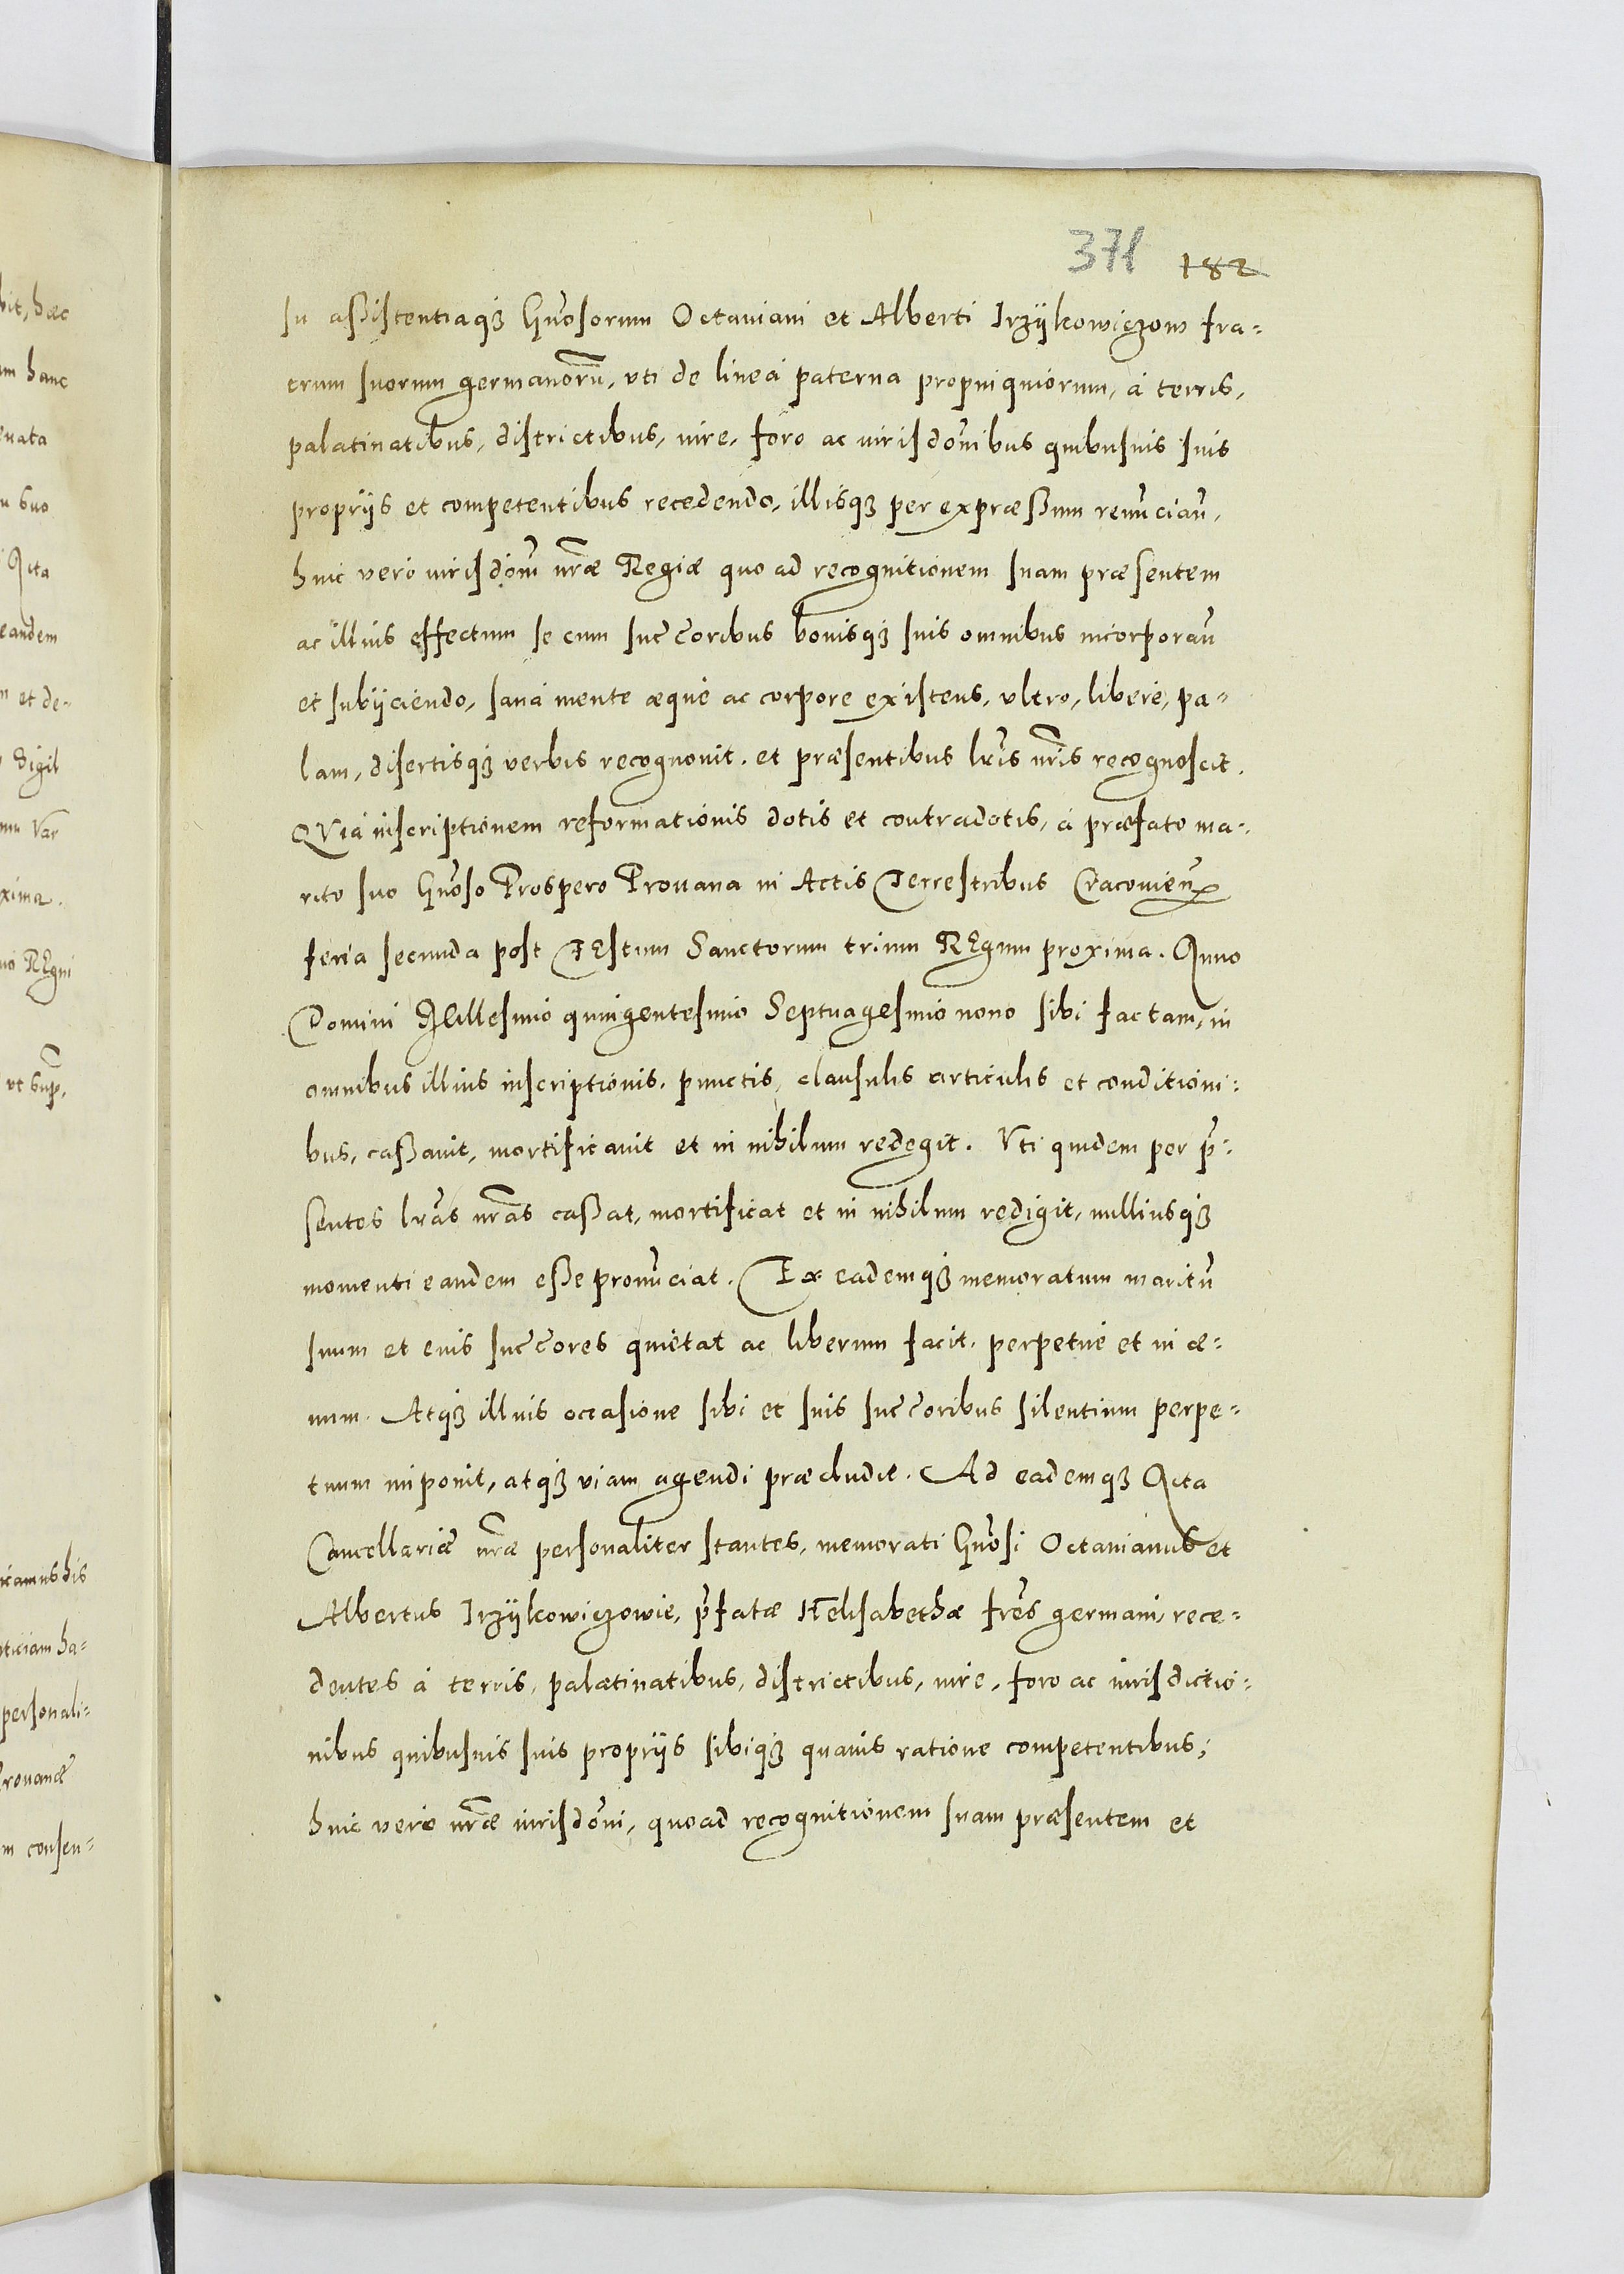 371 182
su assistentiaq₃ Gn̄osorum Octauiani et Alberti Irzÿkowiczow fra=
trum suorum germanorū, vti de lineá paterna propinquiorum, á terris,
palatinatibus, districtibus, iure, foro ac iurisdōnibus quibusuis suis
proprijs et competentibus recedendo, illisq₃ per expræssum renūciañ,
huic veró iurisdiōni nr̄æ Regiæ quo ad recognitionem suam præsentem
ac illius effectum se cum succ̄oribus bonisq₃ suis omnibus incorporañ
et subÿciendo, saná mente æqué ac corpore existens, vltro, liberé, pa=
lam, disertisq₃ verbis recognouit. et præsentibus lr̄is nr̄is recognoscit.
QVia inscriptionem reformationis dotis et contradotis, á præfato ma=
rito suo Gn̄oso Prospero Prouana in Actis Terrestribus Cracouień
feria secunda post FEstum Sanctorum trium REgum proxima. Anno
Domini Millesimo quingentesimo Septuagesimo nono sibi factam, in
omnibus illius inscriptionis, punctis, clausulis articulis et conditioni=
bus, cassauit, mortificauit et in nihilum redegit. Vti quidem per p̄=
sentes lr̄as nr̄as cassat, mortificat et in nihilum redigit, nulliusq₃
momenti eandem esse pronūciat. Ex eademq₃ memoratum maritū
suum et eius succ̄ores quietat ac liberum facit, perpetué et in æ=
uum. Atq₃ illius occasione sibi et suis succ̄oribus silentium perpe=
tuum imponit, atq₃ viam agendi præcludit. Ad eademq₃ Acta
Cancellariæ nr̄æ personaliter stantes, memorati Gn̄osi Octauianus et
Albertus Irzÿkowiczowie, p̄fatæ HElisabethæ fr̄es germani, rece=
dentes á terris, palatinatibus, districtibus, iure, foro ac iurisdictio=
nibus quibusuis suis proprijs sibiq₃ quauis ratione competentibus;
huic veró nr̄æ iurisdōni, quoad recognitionem suam præsentem et